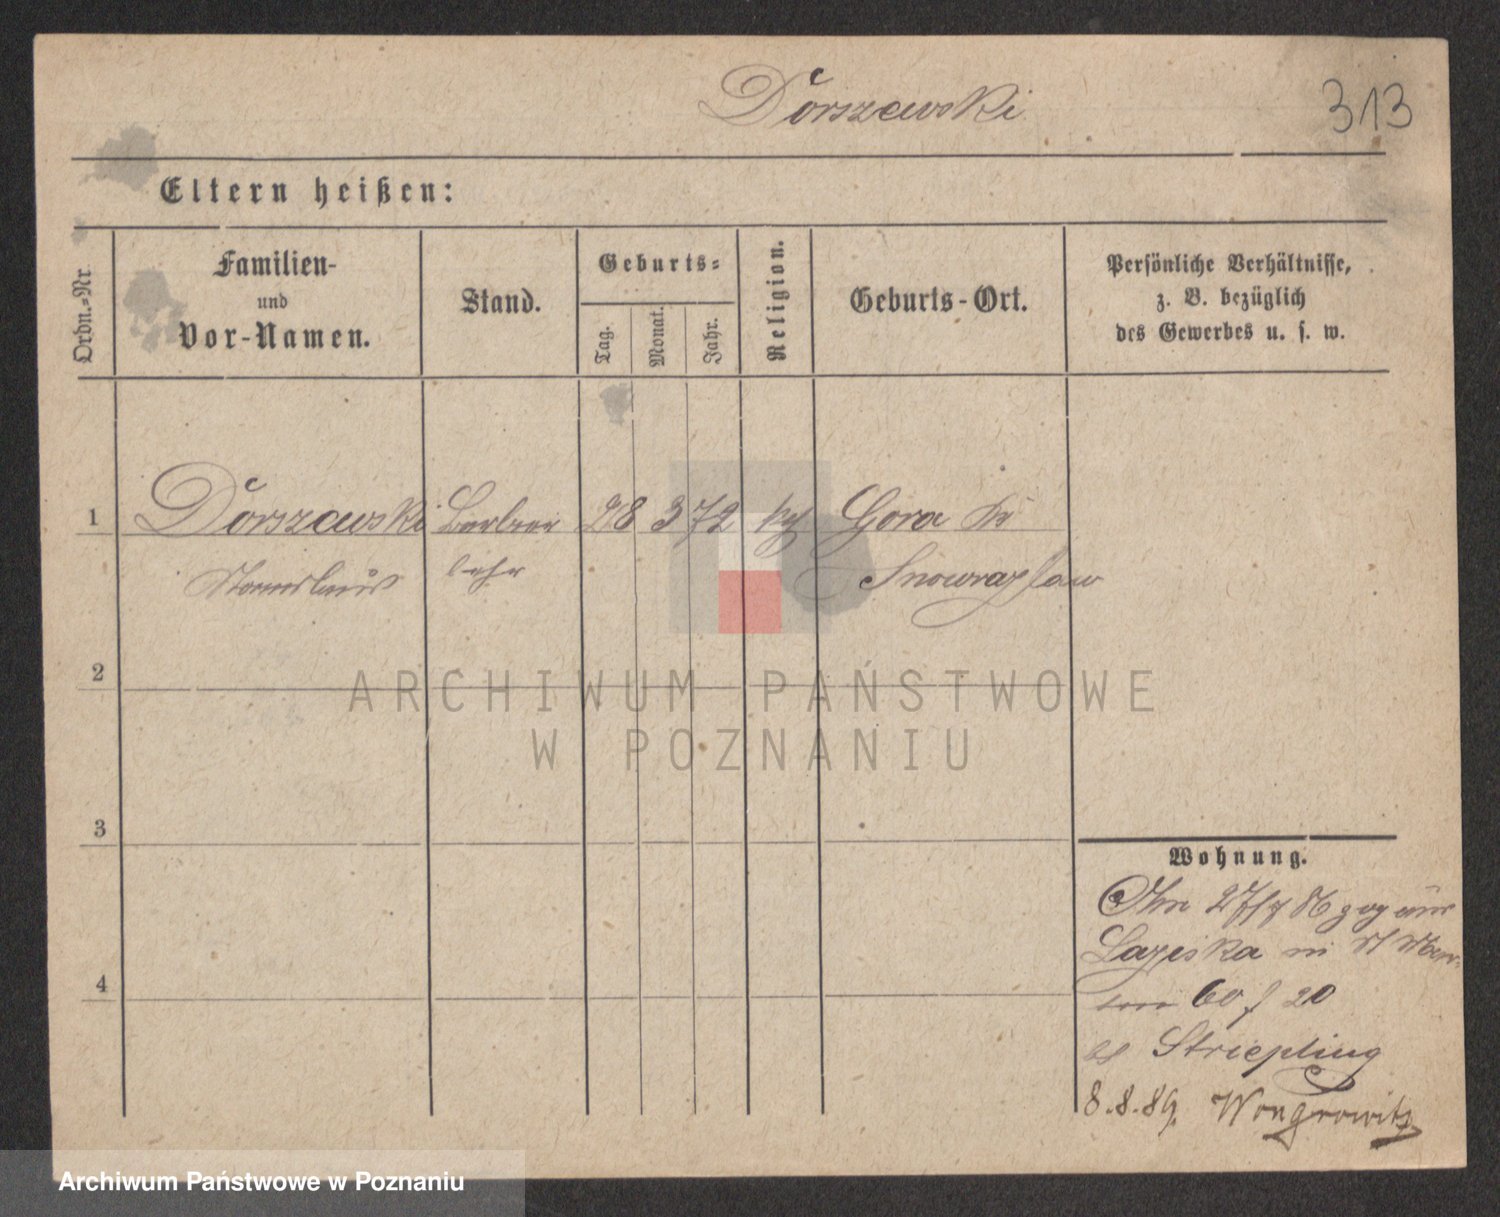 Dorszewski
313
Eltern heißen:
Ordn.-Nr.
Familien-
und
Vor-Namen.
Stand.
Geburts-
Tag.
Monat.
Jahr.
Religion.
Geburts-Ort.
Persönliche Verhältnisse,
z. B. bezüglich
des Gewerbes u. s. w.
1 Dorszewski Barbier 28 3 72 Gora Kr
Stanislaus lehr Inowrazlaw
2
ARCHIWUM PAŃSTWOWE
W POZNANIU
3
4
Wohnung.
27/7 86 zog aus
Lagiska in
60 f 20
Striepling
8.8.89. Wongrowitz
Archiwum Państwowe w Poznaniu